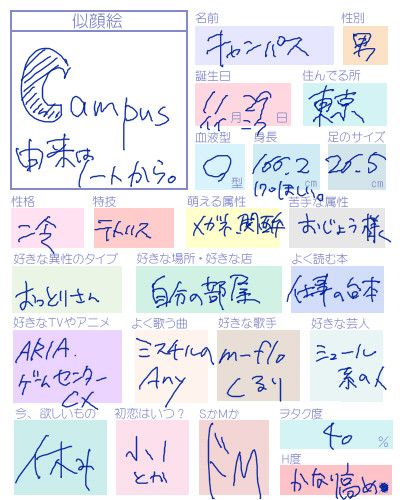 似顔絵
Campus
由来は
ノートから。
名前
キャンパス
性別
男
誕生日
11月29日
イイ
住んでる所
東京
血液型
O型
身長
166.2cm
170ほしい。
足のサイズ
26.5cm
性格
特技
テトリス
萌える属性
メガネ、関西弁
苦手な属性
おじょう様
好きな異性のタイプ
おっとりさん
好きな場所・好きな店
自分の部屋
よく読む本
仕事の台本
好きなTVやアニメ
ARIA.
ゲームセンター
CX
よく歌う曲
ミスチルの
Any
好きな歌手
m-flo
くるり
好きな芸人
シュール
系の人
今、欲しいもの
休み
初恋はいつ？
小1
とか
SかMか
ドM
ヲタク度
40%
H度
かなり高め。